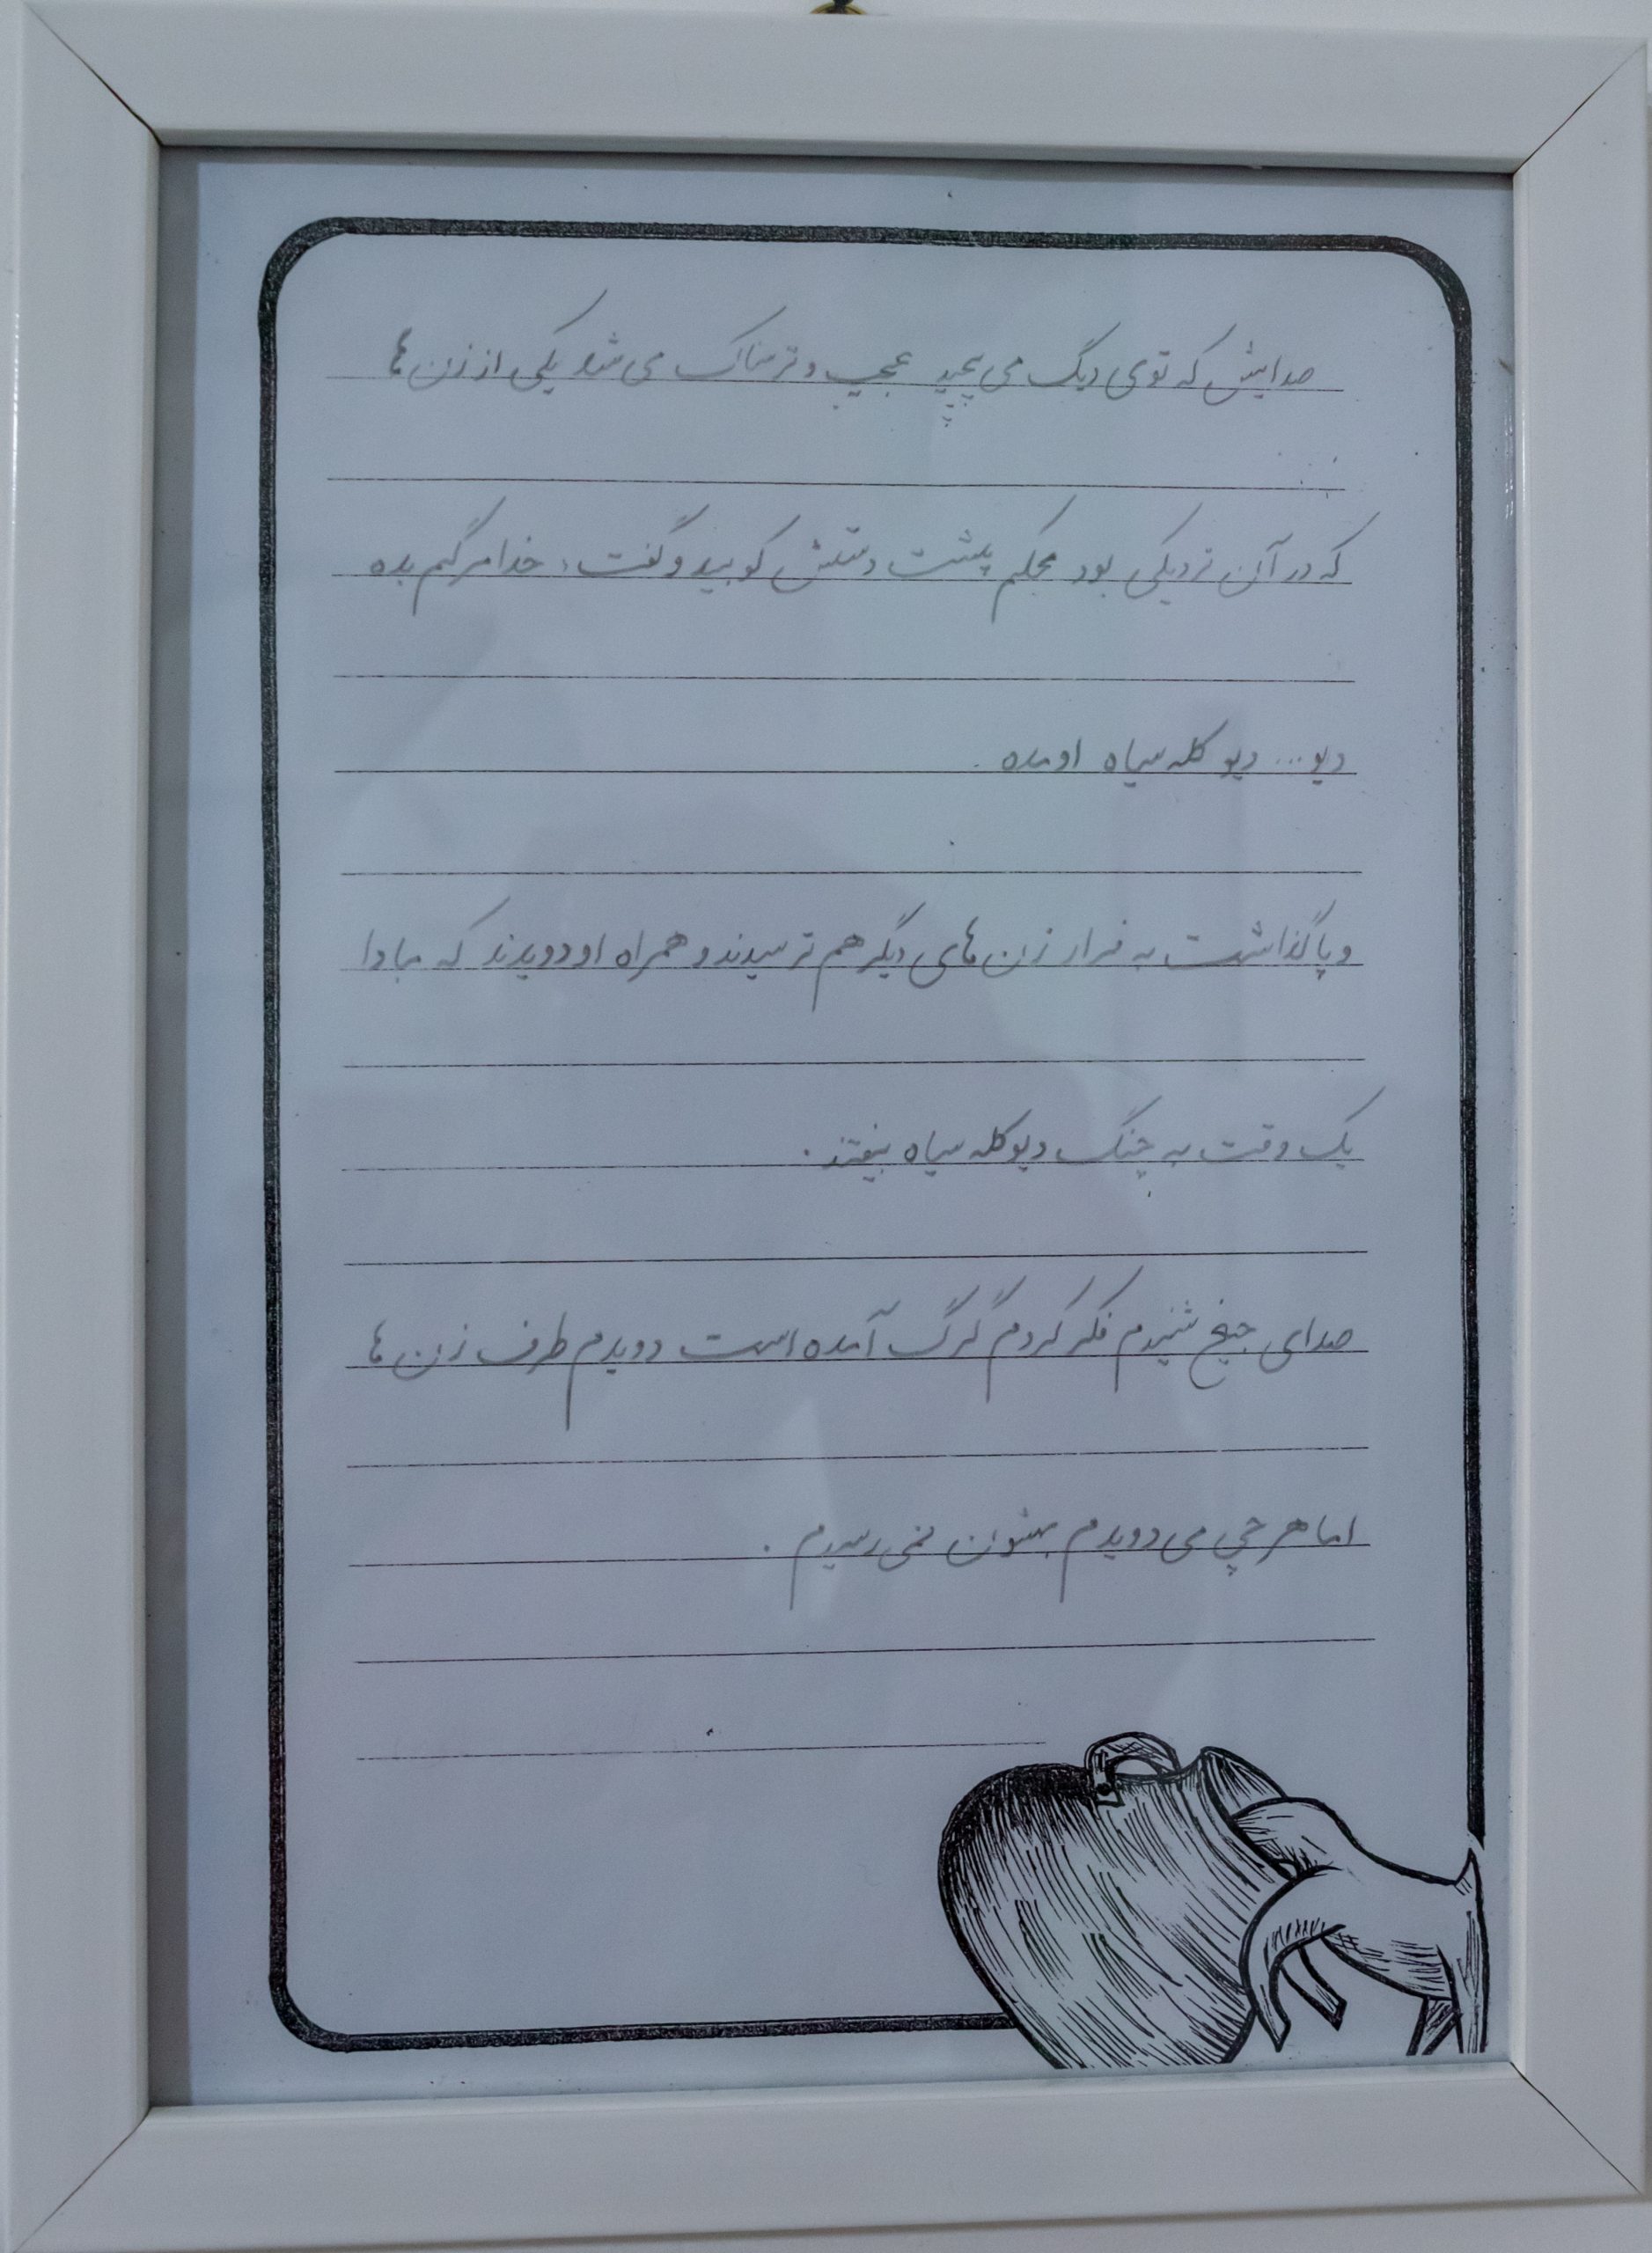 صدایش که توی دیگ می پیچید عجیب و ترسناک می شد یکی از زن ها
که در آن نزدیکی بود محکم پشت دستش کوبید و گفت: خدا مرگم بده
دیو... دیو کله سیاه اومده.
و پا گذاشت به فرار زن های دیگر هم ترسیدند و همراه او دویدند که مبادا
یک وقت به چنگ دیو کله سیاه بیفتند.
صدای جیغ شنیدم فکر کردم گرگ آمده است دویدم طرف زن ها
اما هر چی می دویدم بهشون نمی رسیدم.